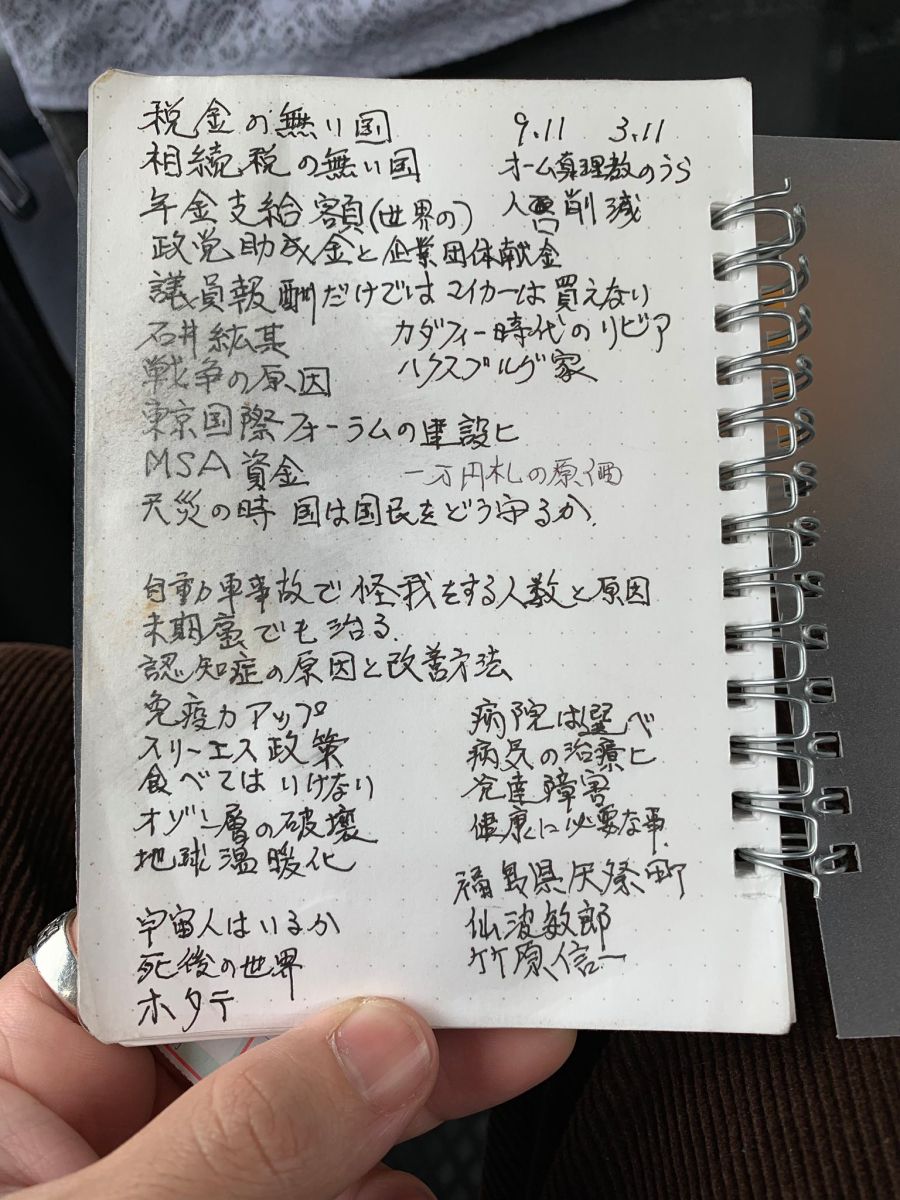 税金の無い国 9.11 3.11
相続税の無い国 オーム真理教のうら
年金支給額(世界の) 人口削減
政党助成金と企業団体献金
議員報酬だけではマイカーは買えない
石井紘基 カダフィー時代のリビア
戦争の原因 ハクスブルグ家
東京国際フォーラムの建設ヒ
MSA資金 一万円札の原価
天災の時 国は国民をどう守るか.
自動車事故で怪我をする人数と原因
末期癌でも治る.
認知症の原因と改善方法
免疫力アップ 病院は選べ
スリーエス政策 病気の治療ヒ
食べてはいけない 発達障害
オゾン層の破壊 健康に必要な事.
地球温暖化
福島県灰祭町
宇宙人はいるか 仙波敏郎
死後の世界 竹原信一
ホタテ